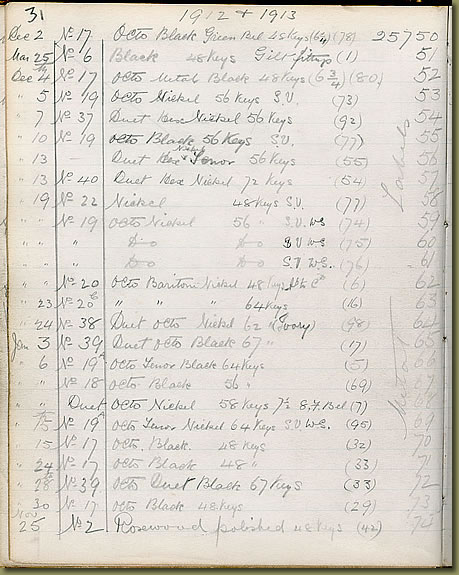 31 1912 + 1913
Dec 2 No 17 Octo Black Green Bel 48 Keys (78) 25750
Mar 25 No 6 Black 48 Keys Gilt fittings (1) 51
Dec 4 No 17 Octo Metal Black 48 Keys (6 3/4) (80) 52
" 5 No 19 Octo Nickel 56 Keys S.V. (73) 53
" 7 No 37 Duet Hex Nickel 56 Keys (92) 54
" 10 No 19 Octo Black 56 Keys S.V. (77) 55
" 13 — Duet Hex Nickel Tenor 56 Keys (55) 56
" 13 No 40 Duet Hex Nickel 72 Keys (54) 57
" 19 No 22 Nickel 48 Keys S.V. (77) 58
" " No 19 Octo Nickel 56 " S.V. WS (74) 59
" " " Do Do S V WS (75) 60
" " " Do Do S.V. W.S. (76) 61
" " No 20 Octo Baritone Nickel 48 Keys (6) 62
" 23 No 20 " " " 64 Keys (16) 63
" 24 No 38 Duet Octo Nickel 62 " (Ivory) (98) 64
Jan 3 No 39 Duet Octo Black 67 " (17) 65
" 6 No 19A Octo Tenor Black 64 Keys (5) 66
" " No 18 Octo Black 56 " (69) 67
" " Duet Octo Nickel 58 Keys 7½ 8 F. Bel (7) 68
" 15 No 19A Octo Tenor Nickel 64 Keys S V W.S. (95) 69
" 15 No 17 Octo Black. 48 Keys (32) 70
" 24 No 17 Octo Black 48 " (33) 71
" 28 No 39 Octo Duet Black 67 Keys (33) 72
" 30 No 17 Octo Black 48 Keys (29) 73
Nov 25 No 2 Rosewood polished 48 Keys (42) 74
Labels